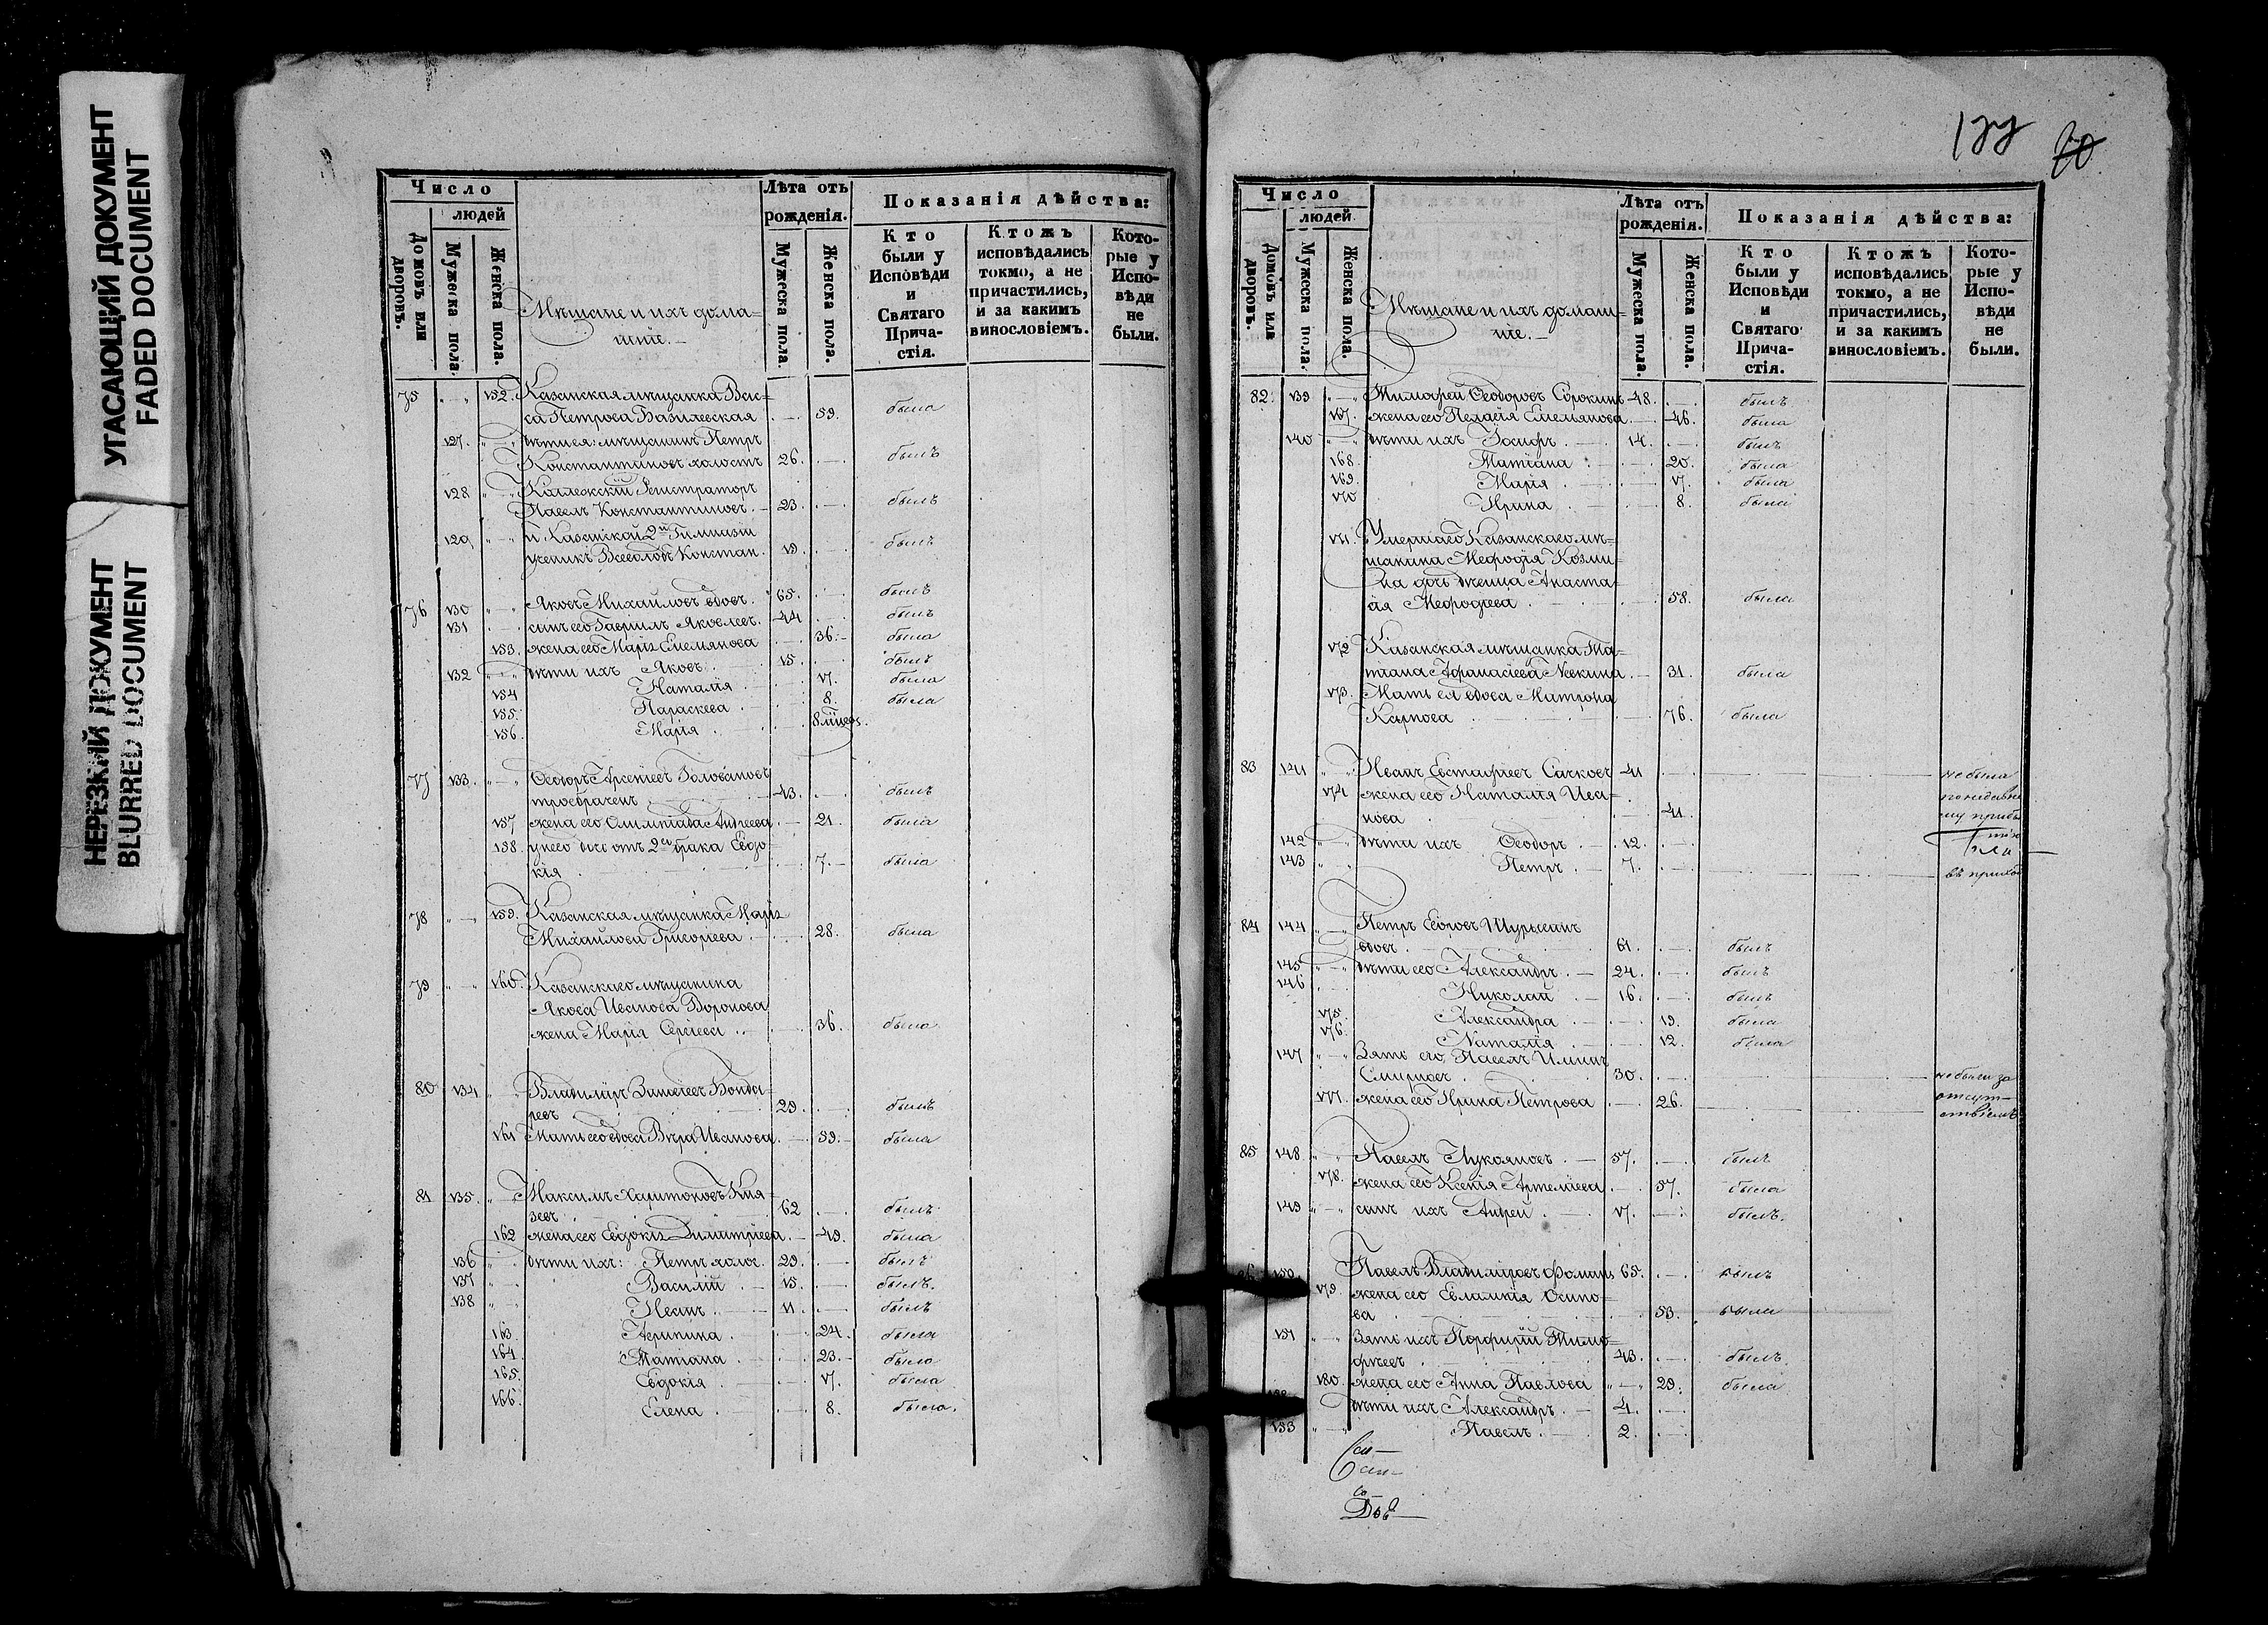 УГАСАЮЩИЙ ДОКУМЕНТ
FADED DOCUMENT
НЕРЕЗКИЙ ДОКУМЕНТ
BLURRED DOCUMENT
Число
людей
Домовъ или дворовъ.
Мужеска пола.
Женска пола.
Мѣщане и ихъ дома=
шніе.
Лѣта отъ рожденія.
Мужеска пола.
Женска пола.
Показанія дѣйства:
Кто были у Исповѣди и Святаго Причастія.
Ктожъ исповѣдались токмо, а не причастились, и за какимъ винословіемъ.
Которые у Исповѣди не были.
75 152. Казанская мѣщанка Вас=
са Петрова Базилевская 59. была
127. дѣти ея: мѣщанинъ Петръ
Константиновъ холостъ 26. былъ
128 Коллежскій Регистраторъ
Павелъ Константиновъ 23. былъ
129 и Казанской 2й Гимназіи
ученикъ Всеволодъ Констан. 19. былъ
76 130 Яковъ Михайловъ вдовъ. 65. былъ
131 сынъ его Гавріилъ Яковлевъ. 44 былъ
153. жена его Марія Емельянова 36. была
132 дѣти ихъ Яковъ 15. былъ
154 Наталія 17. была
155. Параскева 8. была
156. Марія
77 133. Ѳеодоръ Арсеніевъ Головановъ
троебраченъ 43. былъ
157 жена его Олимпіада Андреева 21. была
158. у него дочь отъ 2го брака Евдо=
кія 7. была
78 159. Казанская мѣщанка Марія
Михайлова Григорьева 28. была
79 160. Казанскаго мѣщанина
Якова Иванова Воронова
жена Марія Сергіева 36. была
80 134 Владиміръ Бонда=
ревъ 29. былъ
161 Мать его вдова Вѣра Иванова 59. была
81 135. Максимъ Харитоновъ Кня=
зевъ 62 былъ
162 жена его Евдокія Димитріева 49. была
136 дѣти ихъ: Петръ холос. 29. былъ
137 Василій 15. былъ.
138 Иванъ 11. былъ
163. Агрипина 24. была
164. Татіана 23. была
165. Евдокія 17. была
166. Елена 8. была.
177 70
Число
людей.
Домовъ или дворовъ.
Мужеска пола.
Женска пола.
Мѣщане и ихъ домаш=
ніе.
Лѣта отъ рожденія.
Мужеска пола.
Женска пола.
Показанія дѣйства:
Кто были у Исповѣди и Святаго Причастія.
Ктожъ исповѣдались токмо, а не причастились, и за какимъ винословіемъ.
Которые у Исповѣди не были.
82. 139 Тимофей Ѳеодоровъ Сорокинъ 48. былъ
167. жена его Пелагія Емельянова 46. была
140 дѣти ихъ Іосифъ 14. былъ
168. Татіана 20. была
169. Марія 17. была
170 Ирина 8. была
171. Умершаго Казанскаго мѣ=
щанина Мефодія Козми=
на дочь дѣвица Анаста=
сія Мефодіева 58. была
172 Казанская мѣщанка Та=
тіана Афанасіева 31. была
173. Мать ея вдова Матрона
Карпова 76. была
83 141 Иванъ Евстафіевъ Сачковъ 41 не были
174 жена его Наталія Ива=
нова 41. по недавне
му прибы
тію
142 дѣти ихъ Ѳеодоръ 12.
143 Петръ 7. въ приход
84 144 Петръ Егоровъ
вдовъ 61. былъ
145 дѣти его Александръ 24. былъ
146 Николай 16. былъ
175. Александра 19. была
176. Наталія 12. была
147 Зять его Павелъ Ильинъ
Смирновъ 30. не были за
177. жена его Ирина Петрова 26. отсут=
ствіемъ
85 148 Павелъ Лукояновъ 57. былъ
178. жена его Ксенія 57. была
149 сынъ ихъ Андрей 17. былъ.
150 Павелъ Владиміровъ Фоминъ 65. былъ
179. жена его Евлампія Осипо=
ва 53. была
151 Зять ихъ Порфирій Тимо=
фѣевъ 43. былъ
180. жена его Анна Павлова 29. была
дѣти ихъ Александръ 4.
153 Павелъ 2.